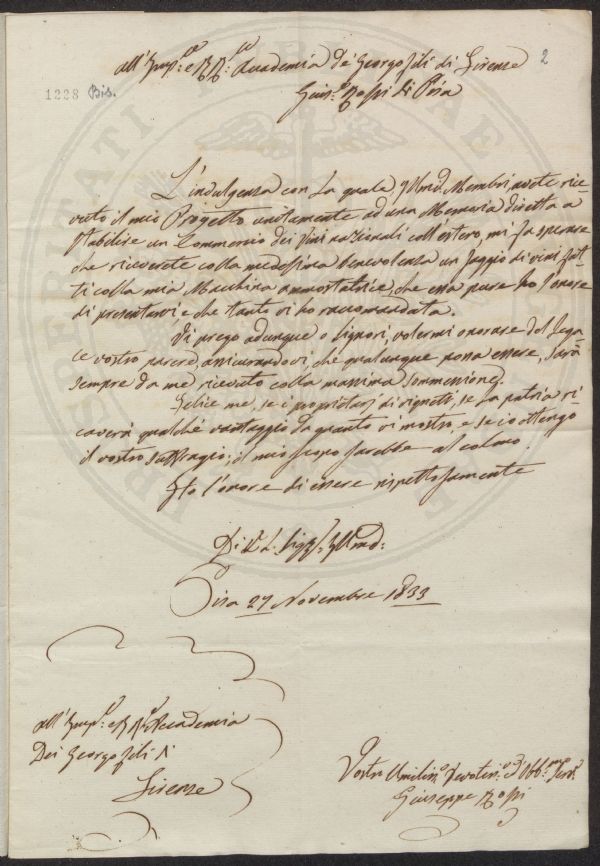 2
all'Imp:e e R.R:le Accademia de' Georgofili di Firenze
1228 Bis.
Gius.e Rossi di Pisa
L'indulgenza con la quale Illmi. Membri, avete rice-
vuto il mio Progetto unitamente ad una Memoria diretta a
stabilire un Commercio dei vini nazionali coll'estero, mi fa sperare
che riceverete colla medesima benevolenza un saggio di vini fat-
ti colla mia Macchina ammostatrice, che essa pure ho l'onore
di presentarvi, e che tanto vi ho raccomandata.
Vi prego adunque o Signori, volermi onorare del lega-
le vostro parere, assicurandovi, che qualunque possa essere, sarà
sempre da me ricevuto colla massima sommissione.
Felice me, se i proprietarj di vigneti, se la patria ri-
caverà qualche vantaggio da quanto vi mostro, e se io ottengo
il vostro suffragio; il mio scopo sarebbe al colmo.
Ho l'onore di essere rispettosamente
Di V. L. Sigg:i Illmi:
Pisa 27 Novembre 1833
all'Imp:e e R.R:e Accademia
Dei Georgofili di
Firenze
Vostro Umilis.o Devotis.o ed Obb.mo Serv.e
Giuseppe Rossi